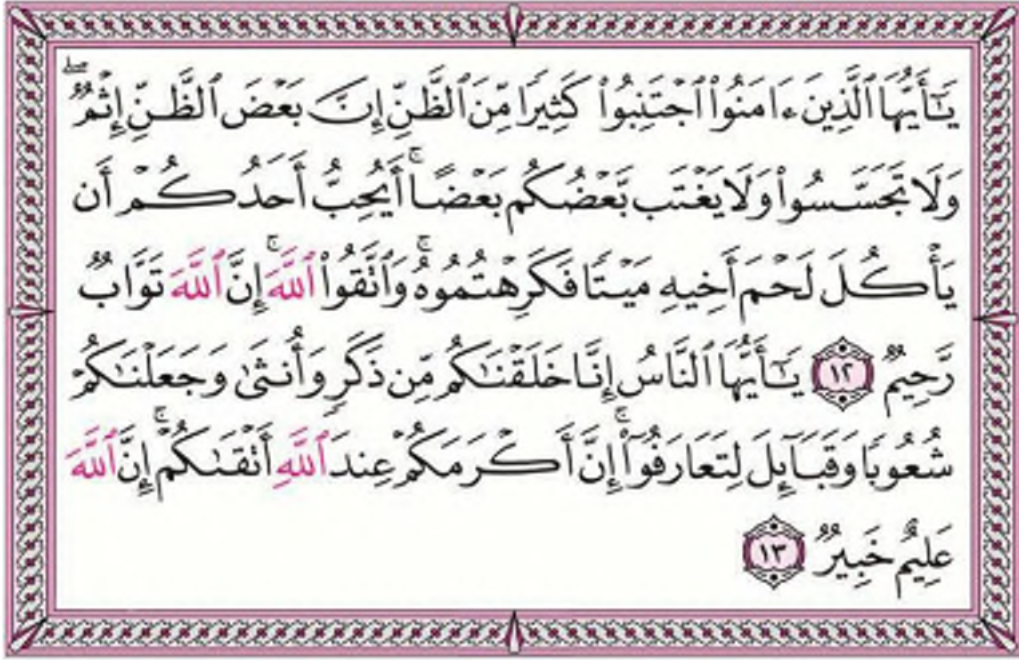 يَٰٓأَيُّهَا ٱلَّذِينَ ءَامَنُوا۟ ٱجْتَنِبُوا۟ كَثِيرًا مِّنَ ٱلظَّنِّ إِنَّ بَعْضَ ٱلظَّنِّ إِثْمٌۖ
وَلَا تَجَسَّسُوا۟ وَلَا يَغْتَب بَّعْضُكُم بَعْضًاۚ أَيُحِبُّ أَحَدُكُمْ أَن
يَأْكُلَ لَحْمَ أَخِيهِ مَيْتًا فَكَرِهْتُمُوهُۚ وَٱتَّقُوا۟ ٱللَّهَۚ إِنَّ ٱللَّهَ تَوَّابٌ
رَّحِيمٌ ١٢ يَٰٓأَيُّهَا ٱلنَّاسُ إِنَّا خَلَقْنَٰكُم مِّن ذَكَرٍ وَأُنثَىٰ وَجَعَلْنَٰكُمْ
شُعُوبًا وَقَبَآئِلَ لِتَعَارَفُوٓا۟ۚ إِنَّ أَكْرَمَكُمْ عِندَ ٱللَّهِ أَتْقَىٰكُمْۚ إِنَّ ٱللَّهَ
عَلِيمٌ خَبِيرٌ ١٣